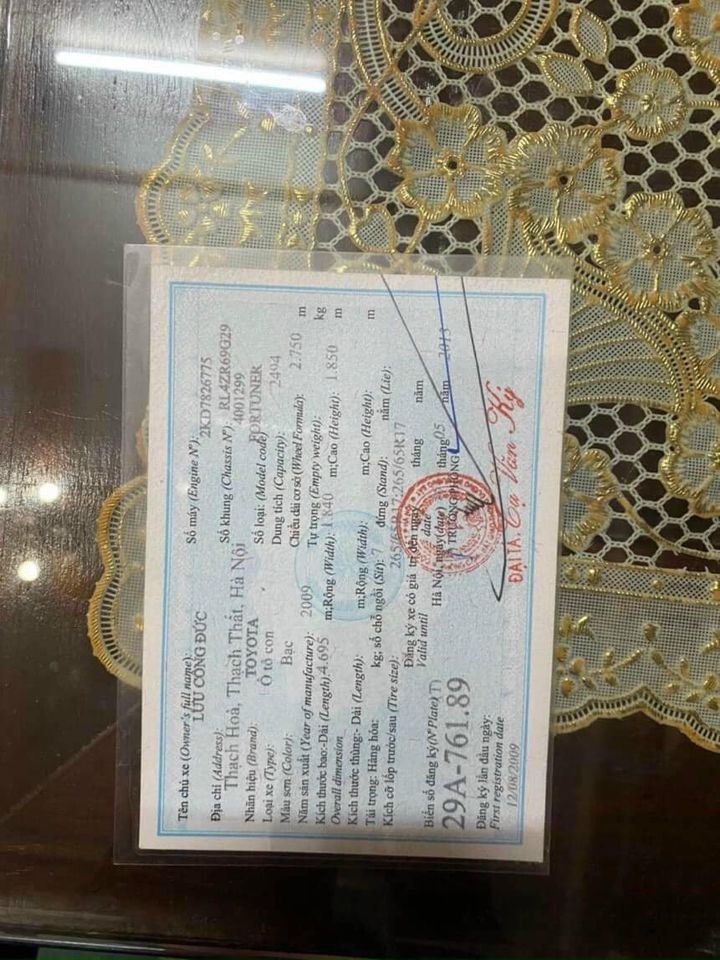 Tên chủ xe (Owner's full name):
LƯU CÔNG ĐỨC
Số máy (Engine N°):
2KD7826775
Địa chỉ (Address):
Thạch Hoà, Thạch Thất, Hà Nội
Số khung (Chassis N°): RL4ZR69G29
4001299
Nhãn hiệu (Brand): TOYOTA
Số loại: (Model code) FORTUNER
Loại xe (Type): Ô tô con
Dung tích (Capacity): 2494
Màu sơn (Color): Bạc
Chiều dài cơ sở (Wheel Formula): 2.750 m
Năm sản xuất (Year of manufacture): 2009
Tự trọng (Empty weight): kg
Kích thước bao:-Dài (Length): 4.695 m;Rộng (Width): 1.840 m;Cao (Height): 1.850 m
Overall dimension
Kích thước thùng:- Dài (Length): m;Rộng (Width): m;Cao (Height): m
Tải trọng: Hàng hóa: kg; số chỗ ngồi (Sit): 7 đứng (Stand): nằm (Lie):
Kích cỡ lốp trước/sau (Tire size): 265/65R17;265/65R17
Đăng ký xe có giá trị đến ngày tháng năm
Valid until date
Biển số đăng ký(N° Plate)(T)
Hà Nội, ngày(date) tháng 05 năm 2013
29A-761.89
TRƯỞNG PHÒNG
Đăng ký lần đầu ngày:
First registration date
12/08/2009
ĐẠI TÁ. Tạ Văn Ký